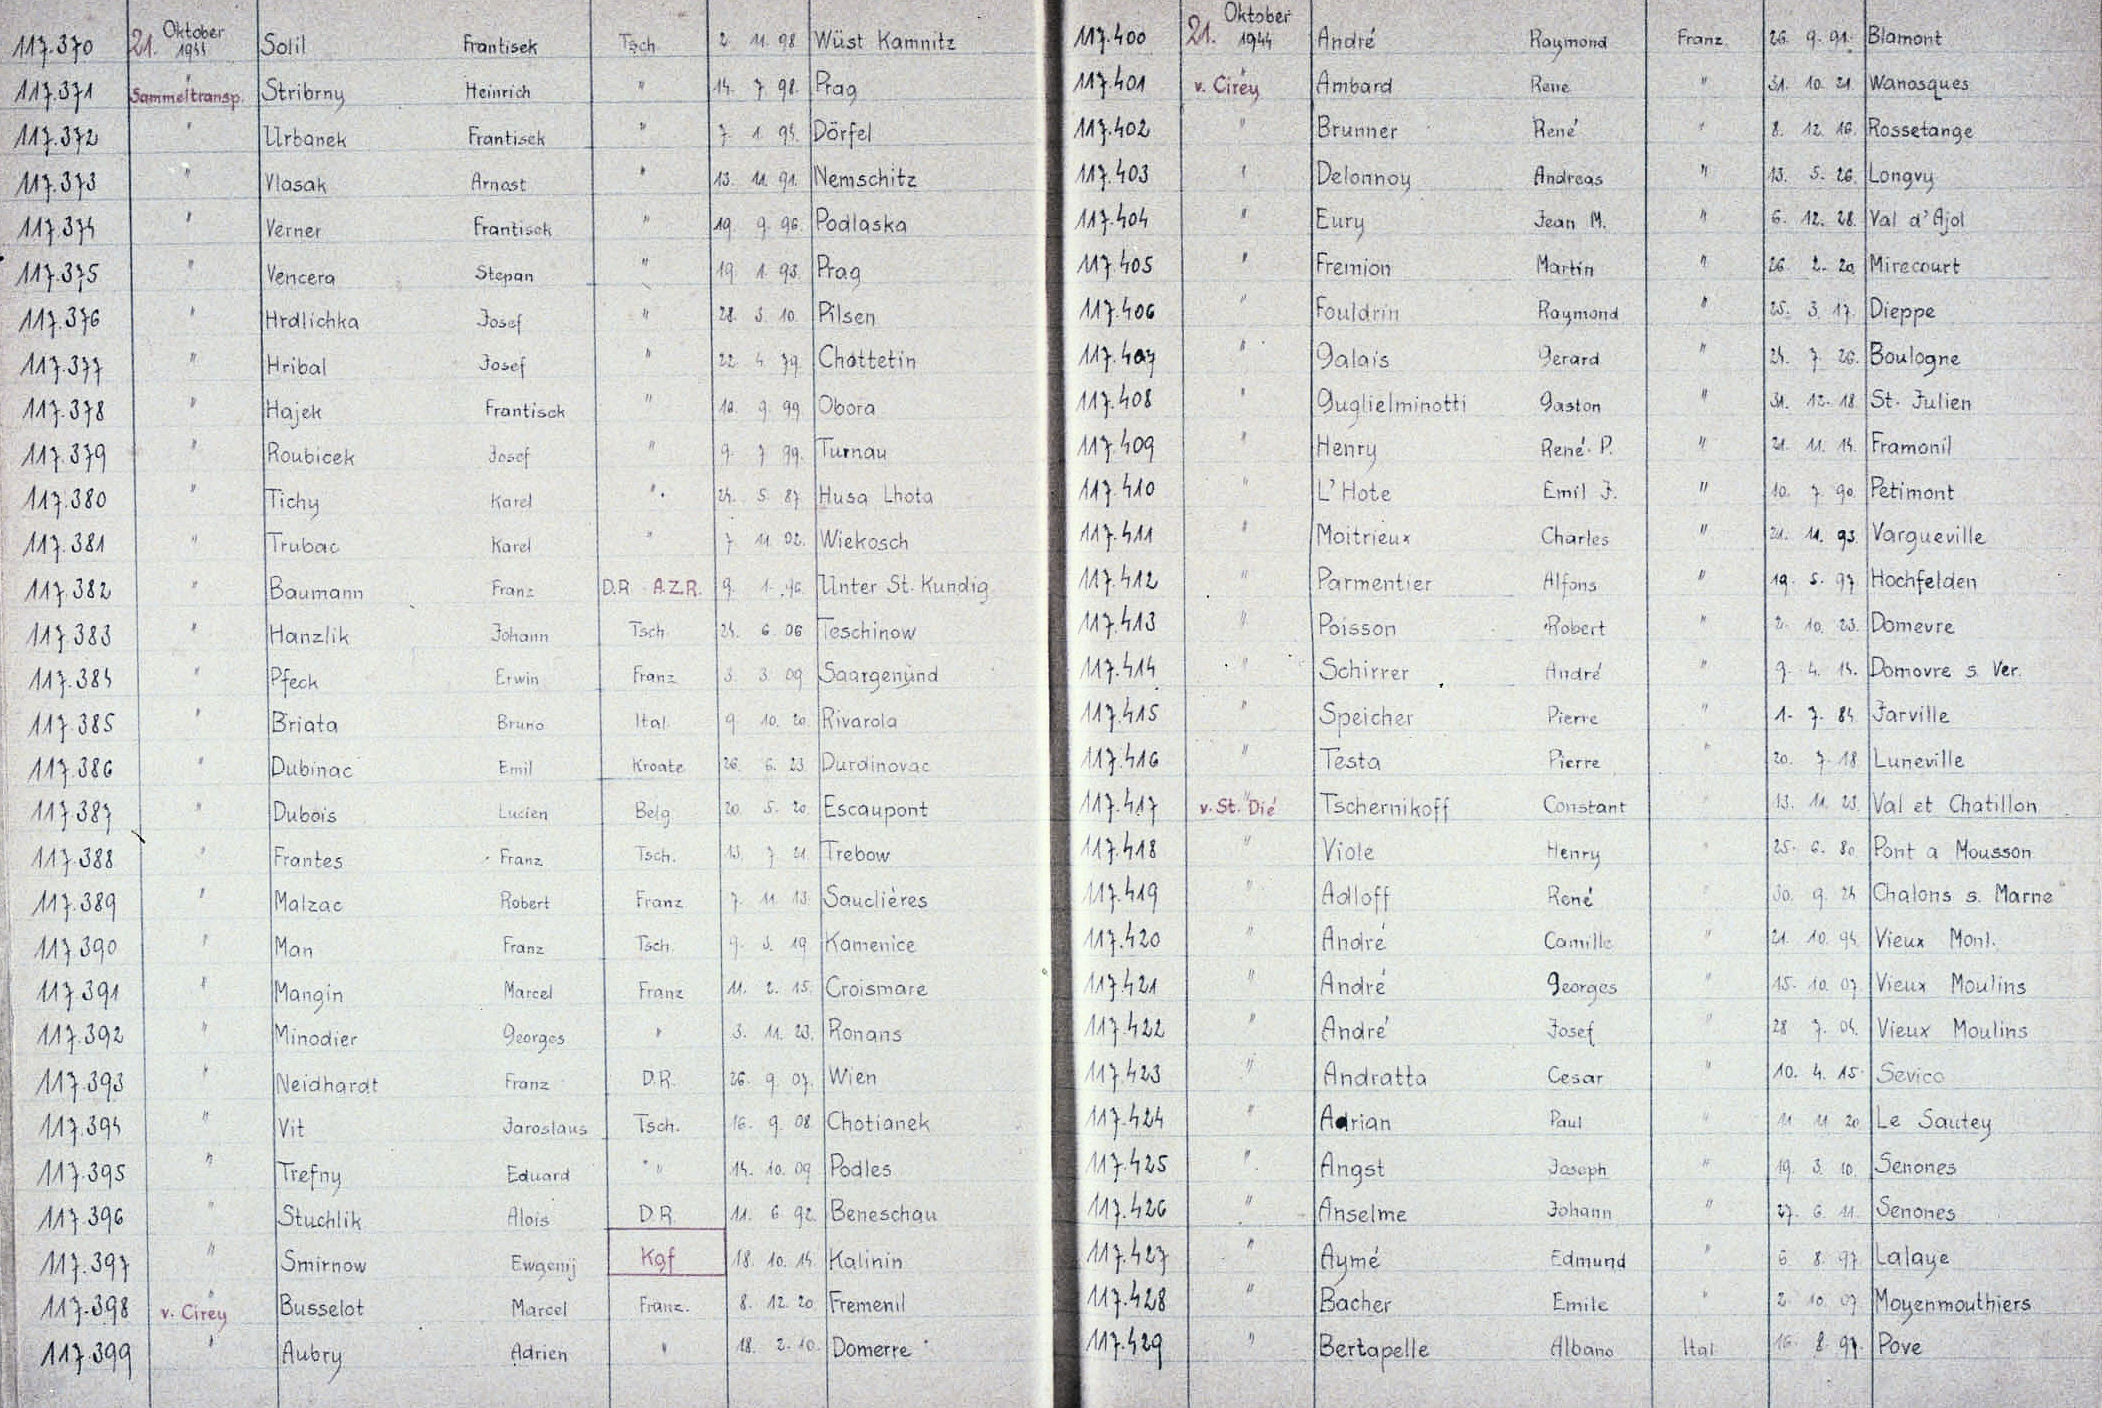 117.370 21. Oktober 1944 Solil Frantisek Tsch 2. 11. 98 Wüst Kamnitz
117.371 Sammeltransp. " Stribrny Heinrich " 14. 7. 98. Prag
117.372 " Urbanek Frantisek " 7. 1. 94. Dörfel
117.373 " Vlasak Arnost " 13. 11. 91. Nemschitz
117.374 " Verner Frantisek " 19. 9. 96. Podlaska
117.375 " Vencera Stepan " 19. 1. 93. Prag
117.376 " Hrdlichka Josef " 28. 3. 10. Pilsen
117.377 " Hribal Josef " 22. 4. 79. Chottetin
117.378 " Hajek Frantisek " 10. 9. 99. Obora
117.379 " Roubicek Josef " 9. 7. 99. Turnau
117.380 " Tichy Karel " 24. 5. 87. Husa Lhota
117.381 " Trubac Karel " 7. 11. 02. Wiekosch
117.382 " Baumann Franz D.R. A.Z.R. 9. 1. 96. Unter St. Kundig
117.383 " Hanzlik Johann Tsch. 24. 6. 06 Teschinow
117.384 " Pfeck Erwin Franz 3. 3. 09 Saargemünd
117.385 " Briata Bruno Ital. 9. 10. 20. Rivarola
117.386 " Dubinac Emil Kroate 26. 6. 23 Durdinovac
117.387 " Dubois Lucien Belg. 20. 5. 20. Escaupont
117.388 " Frantes Franz Tsch. 13. 7. 21. Trebow
117.389 " Malzac Robert Franz 7. 11. 13. Sauclières
117.390 " Man Franz Tsch. 9. 3. 19 Kamenice
117.391 " Mangin Marcel Franz 11. 2. 15. Croismare
117.392 " Minodier Georges " 3. 11. 23. Ronans
117.393 " Neidhardt Franz D.R. 26. 9. 07. Wien
117.394 " Vit Jaroslaus Tsch. 16. 9. 08 Chotianek
117.395 " Trefny Eduard " 14. 10. 09 Podles
117.396 " Stuchlik Alois D.R. 11. 6. 92. Beneschau
117.397 " Smirnow Ewgenij Kgf 18. 10. 14. Kalinin
117.398 v. Cirey " Busselot Marcel Franz. 8. 12. 20 Fremenil
117.399 " Aubry Adrien " 18. 2. 10. Domerre
117.400 21. Oktober 1944 André Raymond Franz. 26. 9. 91. Blamont
117.401 v. Cirey " Ambard Rene " 31. 10. 21. Wanosques
117.402 " Brunner René " 8. 12. 16. Rossetange
117.403 " Delonnoy Andreas " 13. 5. 26. Longvy
117.404 " Eury Jean M. " 6. 12. 28. Val d'Ajol
117.405 " Fremion Martin " 26. 2. 20. Mirecourt
117.406 " Fouldrin Raymond " 25. 3. 17. Dieppe
117.407 " Galais Gerard " 24. 7. 26. Boulogne
117.408 " Guglielminotti Gaston " 31. 12. 18. St. Julien
117.409 " Henry René P. " 21. 11. 14. Framonil
117.410 " L'Hote Emil J. " 10. 7. 90. Petimont
117.411 " Moitrieux Charles " 21. 11. 93. Vargueville
117.412 " Parmentier Alfons " 19. 5. 97. Hochfelden
117.413 " Poisson Robert " 2. 10. 23. Domevre
117.414 " Schirrer André " 9. 4. 14. Domovre s. Ver.
117.415 " Speicher Pierre " 1. 7. 84. Jarville
117.416 " Testa Pierre " 20. 7. 18 Luneville
117.417 v. St. Dié " Tschernikoff Constant " 13. 11. 23. Val et Chatillon
117.418 " Viole Henry " 25. 6. 80 Pont a Mousson
117.419 " Adloff René " 30. 9. 24 Chalons s. Marne
117.420 " André Camille " 21. 10. 94. Vieux Monl.
117.421 " André Georges " 15. 10. 07 Vieux Moulins
117.422 " André Josef " 28. 7. 04. Vieux Moulins
117.423 " Andratta Cesar " 10. 4. 15. Sevico
117.424 " Adrian Paul " 11. 11. 20 Le Sautey
117.425 " Angst Joseph " 19. 3. 10. Senones
117.426 " Anselme Johann " 27. 6. 11. Senones
117.427 " Aymé Edmund " 6. 8. 97 Lalaye
117.428 " Bacher Emile " 2. 10. 07 Moyenmouthiers
117.429 " Bertapelle Albano Ital 16. 8. 97. Pove